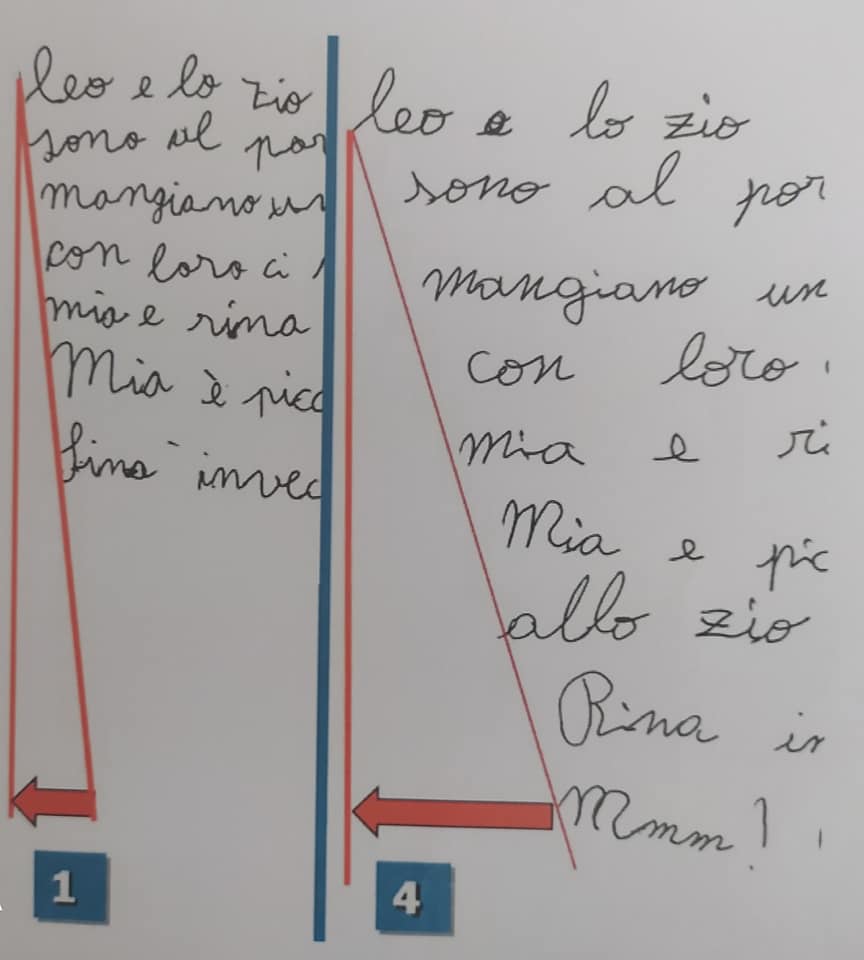 leo e lo zio
sono al por
mangiano un
con loro ci
mia e rina
Mia è picc
invec
1
leo e lo zio
sono al por
mangiano un
con loro
mia e ri
Mia e pic
allo zio
Rina in
Mmm!
4